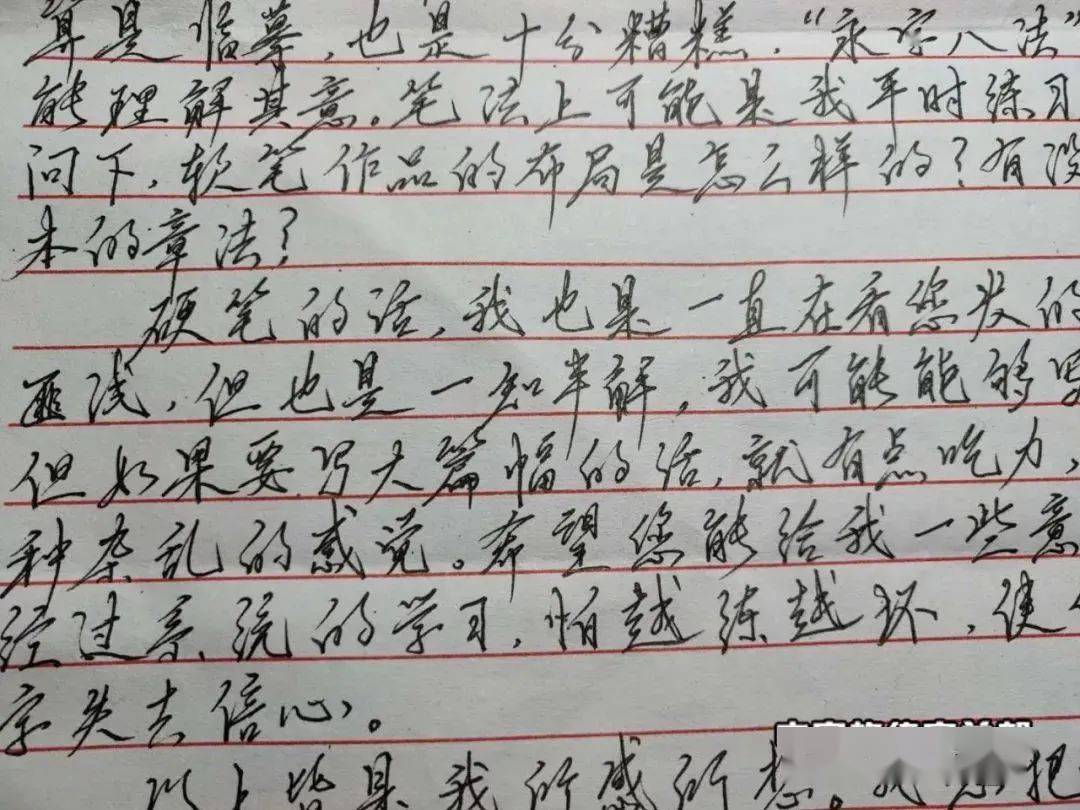 算是临摹,也是十分糟糕.“永字八法”
能理解其意。笔法上可能是我平时练习
问下,软笔作品的布局是怎么样的?有没
本的章法?
硬笔的话,我也是一直在看您发的
匪浅,但也是一知半解,我可能能够写
但如果要写大篇幅的话,就有点吃力,
种杂乱的感觉。希望您能给我一些意
经过系统的学习,怕越练越坏,使
字失去信心。
以上皆是我所感所想。 把